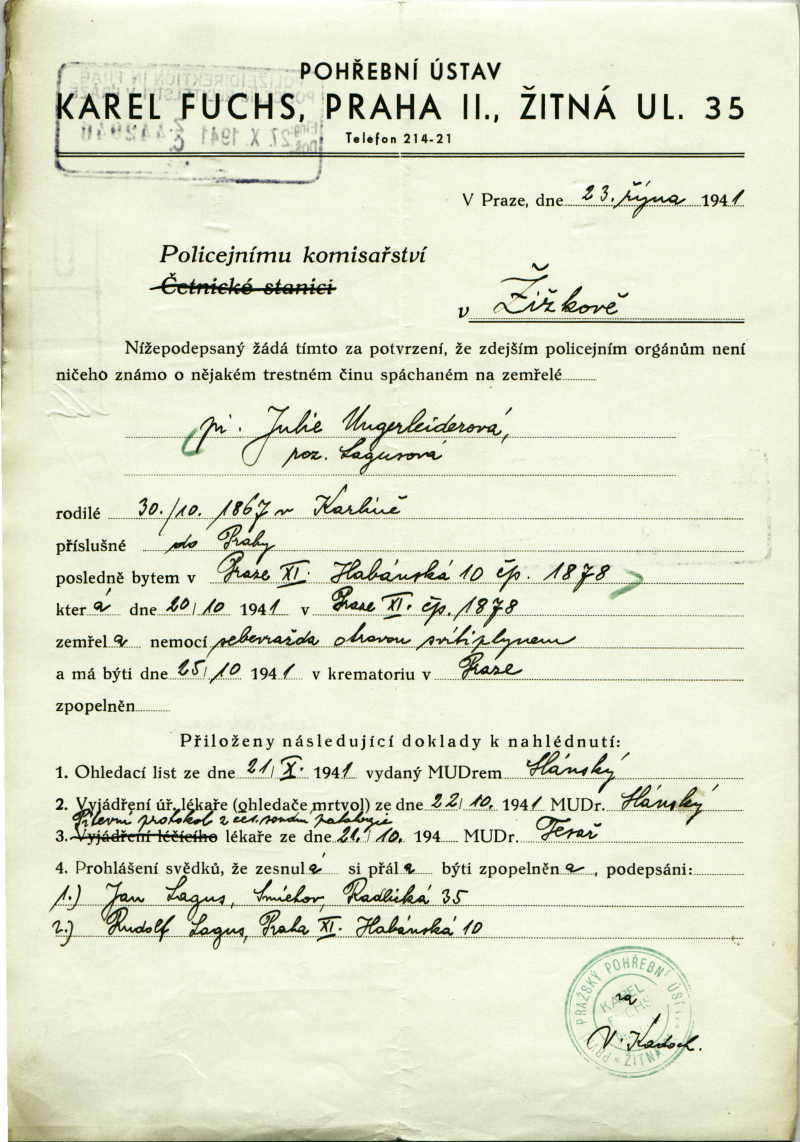 POHŘEBNÍ ÚSTAV
KAREL FUCHS, PRAHA II., ŽITNÁ UL. 35
Telefon 214-21
POLIZEIDIREKTION IN PRAG
27. X. 1941
V Praze, dne 23. října 1941
Policejnímu komisařství
Četnické stanici
v Žižkově
Nížepodepsaný žádá tímto za potvrzení, že zdejším policejním orgánům není
ničeho známo o nějakém trestném činu spáchaném na zemřelé
pí. Julie Ungerleiderová,
roz. Lagusová
rodilé 30./10. 1867 v Karlíně
příslušné do Prahy
posledně bytem v Praze XI. Habánská 10 čp. 1878
která dne 20/10 1941 v Praze XI. čp. 1878
zemřela nemocí sebevražda otravou svítiplynem
a má býti dne 25/10 1941 v krematoriu v Praze
zpopelněn
Přiloženy následující doklady k nahlédnutí:
1. Ohledací list ze dne 21/X. 1941 vydaný MUDrem Slánský
2. Vyjádření úř. lékaře (ohledače mrtvol) ze dne 22/10. 1941 MUDr. Slánský
Pitevní protokol z úst. soudní patologie
3. Vyjádření léčícího lékaře ze dne 21./10. 194 MUDr. Tesař
4. Prohlášení svědků, že zesnulá si přála býti zpopelněna, podepsáni:
1.) Jan Lagus, Smíchov, Radlická 35
2.) Rudolf Lagus, Praha XI. Habánská 10
PRAŽSKÝ POHŘEBNÍ ÚSTAV
KAREL FUCHS
ŽITNÁ
za
V. Kadoch.